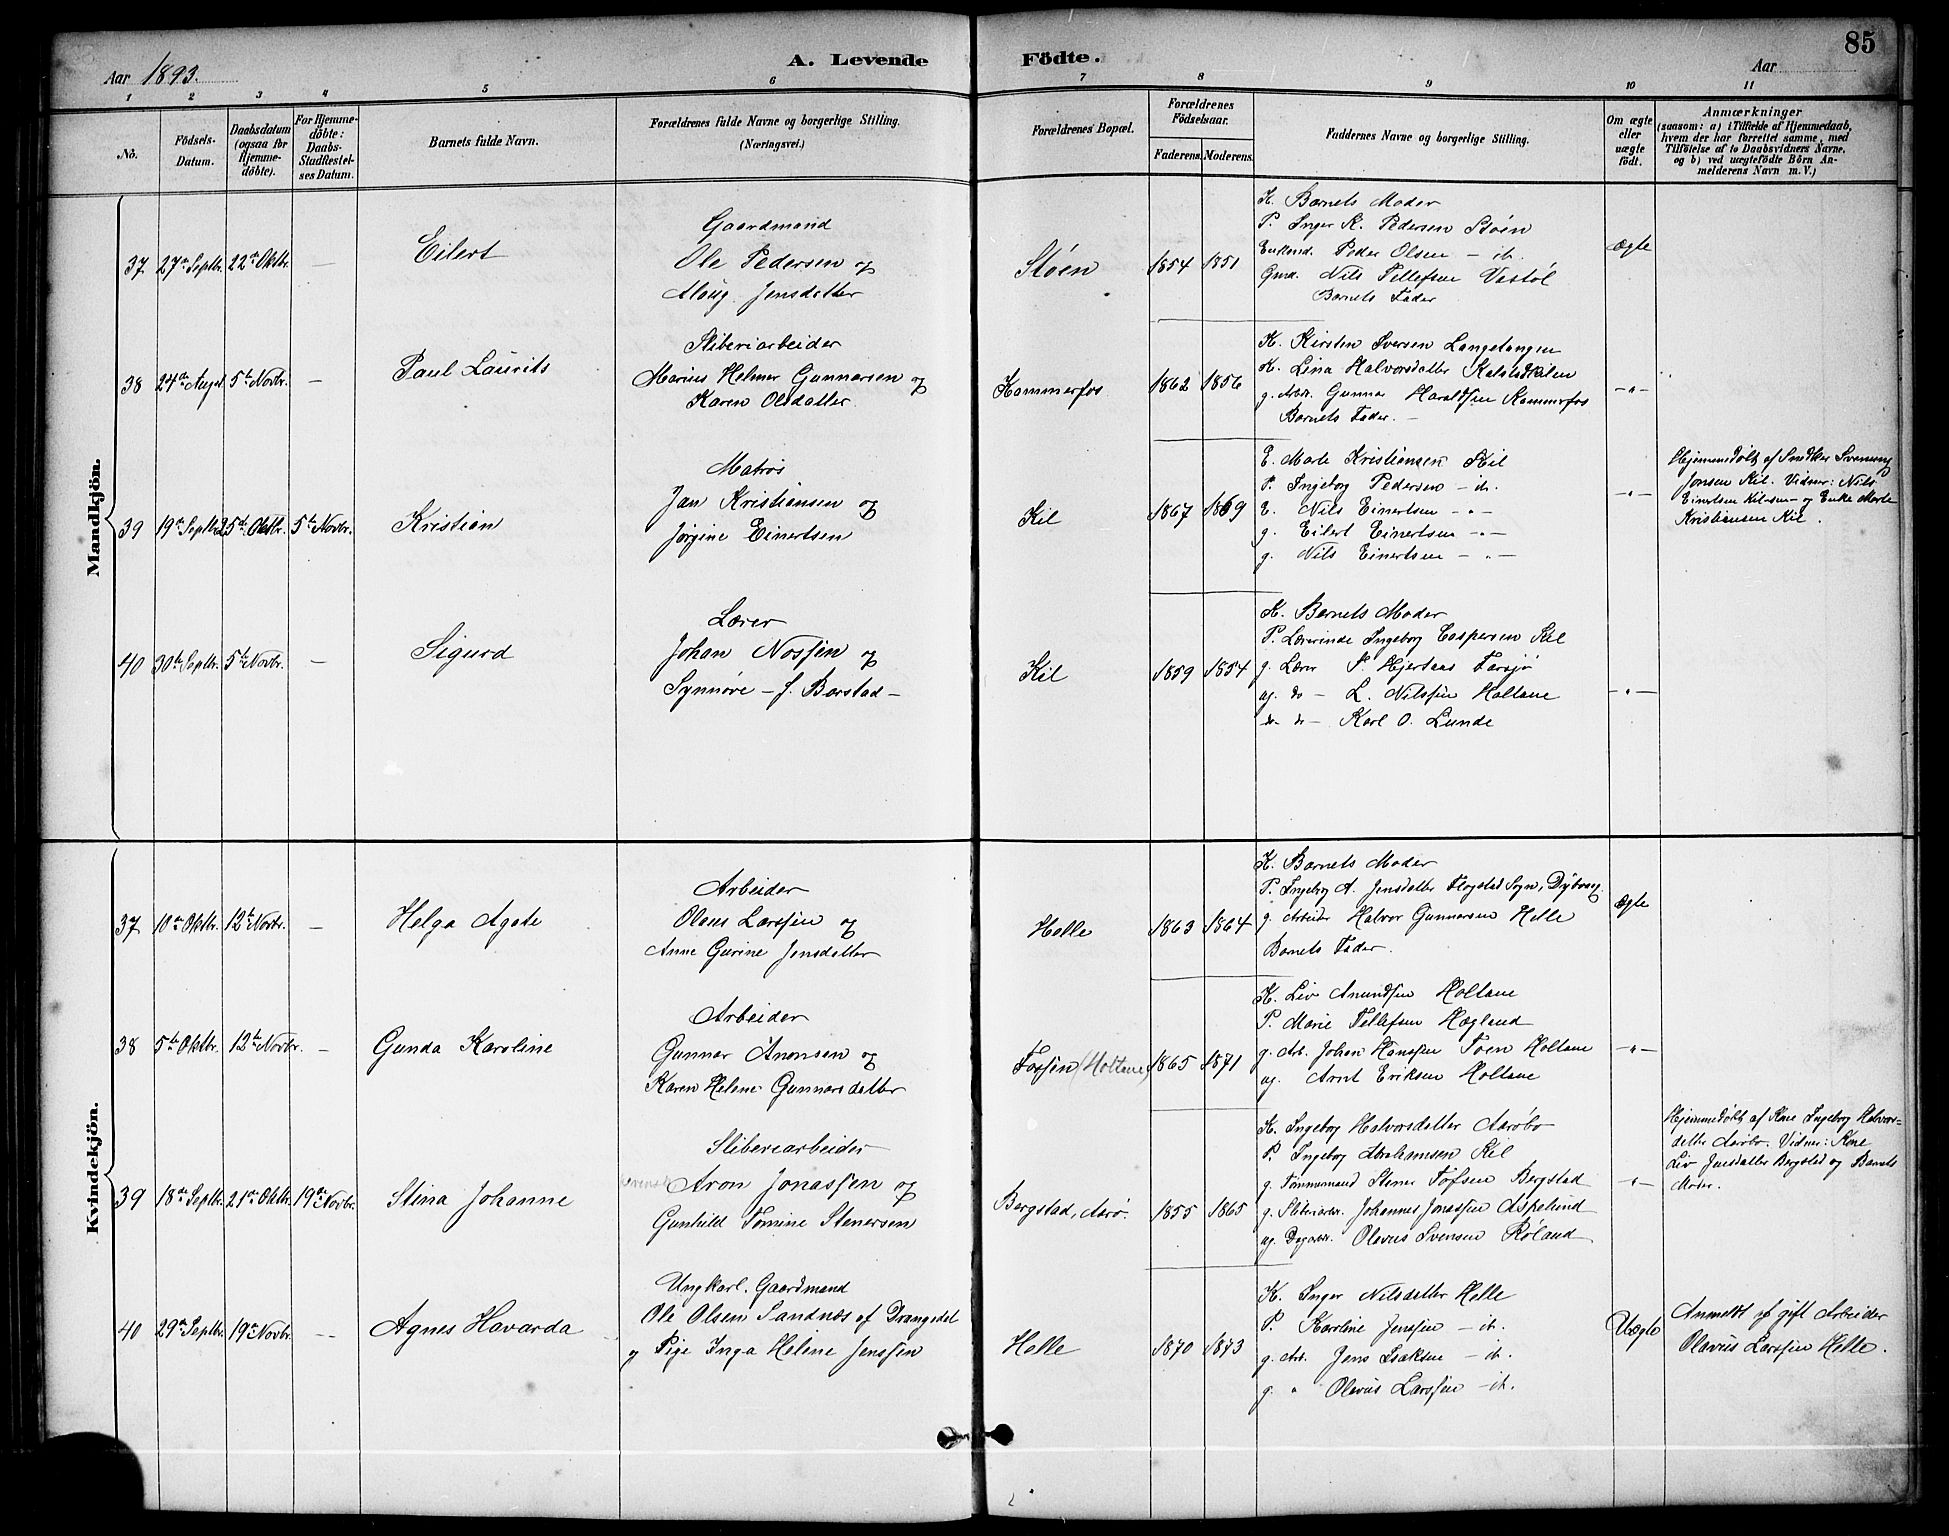 85
Aar 1893.
A. Levende Födte.
Aar
1 2 3 4 5 6 7 8 9 10 11
No.
Födsels-Datum.
Daabsdatum (ogsaa for Hjemme-döbte).
For Hjemme-döbte: Daabs-Stadfæstel-ses Datum.
Barnets fulde Navn.
Forældrenes fulde Navne og borgerlige Stilling.
(Næringsvei.)
Forældrenes Bopæl.
Forældrenes Födselsaar.
Faderens. Moderens.
Faddernes Navne og borgerlige Stilling.
Om ægte eller uægte födt.
Anmærkninger
(saasom: a) i Tilfælde af Hjemmedaab,
hvem der har forrettet samme, med
Tilföielse af to Daabsvidners Navne,
og b) ved uægtefödte Börn An-
melderens Navn m. V.)
Mandkjön.
37 27de Septbr. 22de Oktbr. —
Eilert
Gaardmand
Ole Pedersen og
Aloug Jensdatter
Støen
1854 1851
K. Barnets Moder
P. Inger K. Pedersen Støen
Enkemd. Peder Olsen — it.
Gmd. Nils Tellefsen Vestøl
Barnets Fader
ægte
38 24de Augst. 5te Novbr. —
Paul Laurits
Sliberiarbeider
Marius Helmer Gunnarsen og
Karen Olsdatter
Kammerfos
1862 1856
K. Kirsten Iversen Langetangen
K. Lina Halvorsdatter Kalstadkilen
g. Arb. Gunnar Haraldsen Kammerfos
Barnets Fader. —
—"—
39 19de Septbr. 25de Oktbr. 5te Novbr.
Kristian
Matros
Jan Kristiansen og
Jørgine Einertsen
Kil
1867 1869
E. Marte Kristiansen Kil
P. Ingeborg Pedersen — it.
E. Nils Einertsen —"—
g. Eilert Einertsen —"—
g. Nils Einertsen —"—
—"—
Hjemmedøbt af Snedker Svenung
Jonsen Kil. Vidner: Nils
Einertsen Kil og Enke Marte
Kristiansen Kil.
40 30te Septbr. 5te Novbr. —
Sigurd
Lærer
Johan Nossen og
Synnøve — f. Barstad —
Kil
1859 1854
K. Barnets Moder
P. Lærerinde Ingeborg Caspersen Kil
g. Lærer T. Hjertaas Farsjø
ug. do — L. Nilssen Holtane
do do — Karl O. Lunde
—"—
Kvindekjön.
37 10de Oktbr. 12te Novbr. —
Helga Agate
Arbeider
Olaus Larssen og
Anne Gurine Jensdatter
Helle
1863 1864
K. Barnets Moder
P. Ingeborg A. Jensdatter Flogstad Sogn, Dybvaag.
g. Arbeider Halvor Gunnarsen Helle
Barnets Fader.
ægte
38 5te Oktbr. 12te Novbr. —
Gunda Karoline
Arbeider
Gunnar Anonsen og
Karen Helene Gunnarsdatter
Fossen (Holtane)
1865 1871
K. Liv Anundsen Holtane
P. Marie Tellefsen Hægland
g. Arb. Johan Hanssen Toen Holtane
ug. Arnt Eriksen Holtane
—"—
39 18de Septbr. 21de Oktbr. 19de Novbr.
Stina Johanne
Sliberiarbeider
svensk Aron Jonassen og
Gunhild Tomine Stenersen
Bergstad, Aarø.
1855 1865
K. Ingeborg Halvorsdatter Aarøbo
P. Ingeborg Abrahamsen Kil
g. Tømmermand Stener Tofsen Bergstad
g. Sliberiarb. Johannes Jonassen Aspelund
ug. Dagarb. Olavus Svensen Røland
—"—
Hjemmedøbt af Kone Ingeborg Halvors-
datter Aarøbo. Vidner: Kone
Liv Jensdatter Bergstad og Barnets
Moder.
40 29de Septbr. 19de Novbr. —
Agnes Havarda
Ungkarl. Gaardmand
Ole Olsen Sandnæs af Drangedal
og Pige Inga Heline Jenssen
Helle
1870 1873
K. Inger Nilsdatter Helle
P. Karoline Jenssen — it.
g. Arb. Jens Isaksen — it.
g. " Olavus Larssen — it.
Uægte
Anmeldt af gift Arbeider
Olavus Larssen Helle.